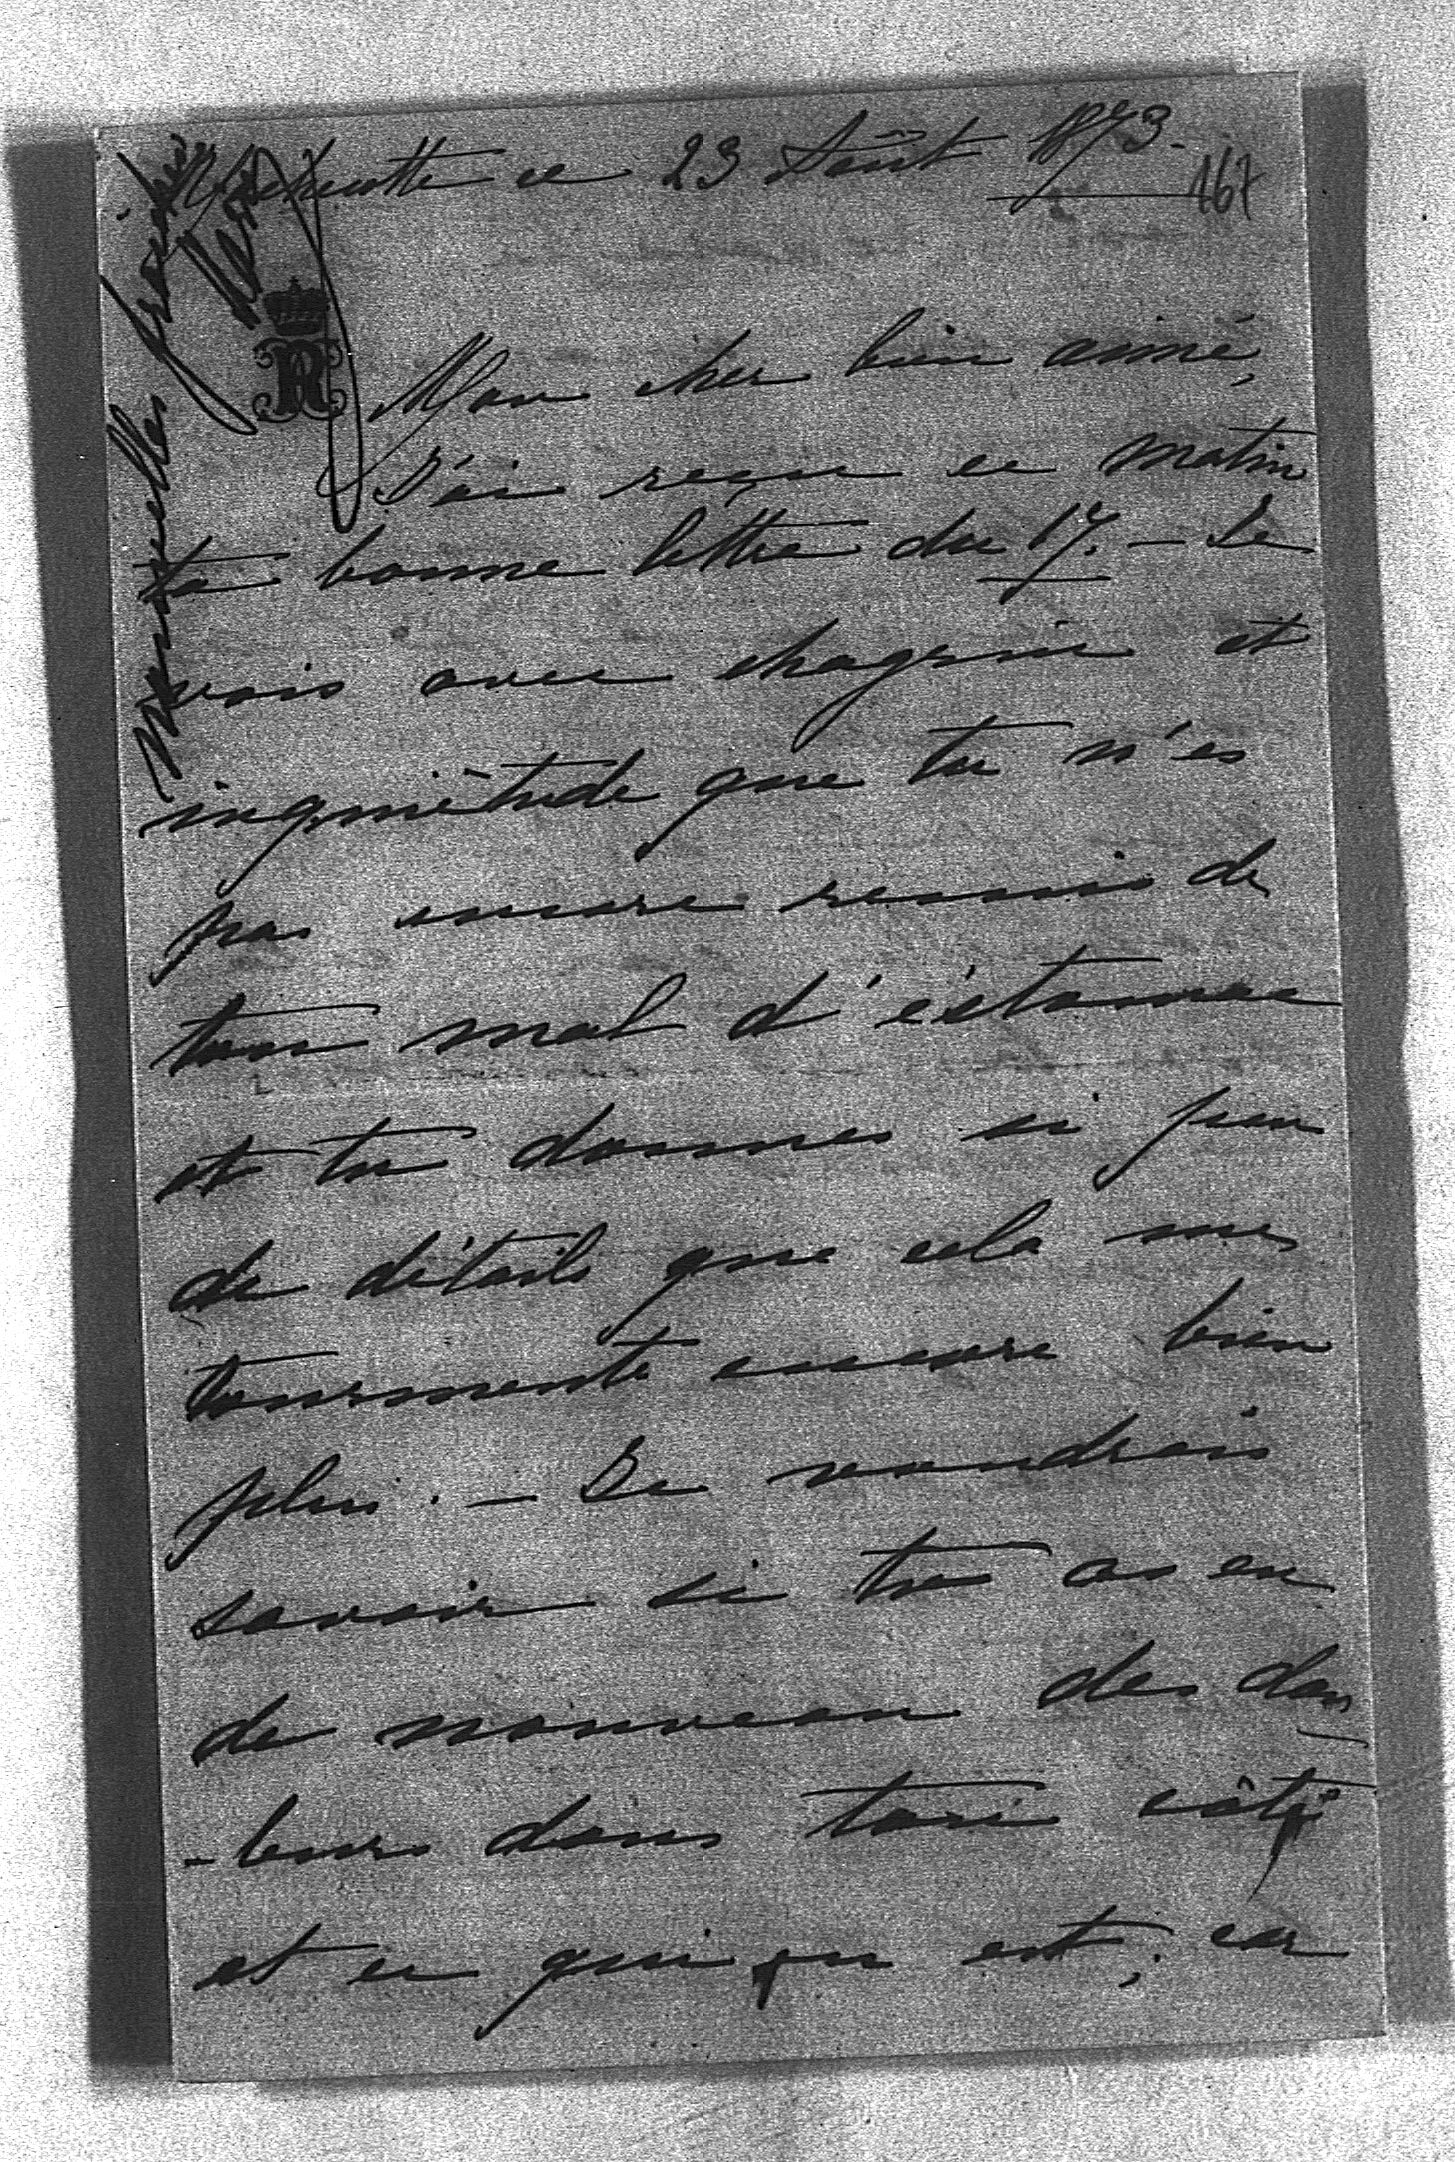 ce 23 Août 1873.
167
Mon cher bien aimé,
J'ai reçu ce matin
ta bonne lettre du 17. — Je
vois avec chagrin et
inquiètude que tu n'es
pas encore remis de
ton mal d'éstomac
et tu donnes si peu
de détails que cela me
tourmente encore bien
plus. — Je voudrais
savoir si tu as eu
de nouveau des dou
-leurs dans ton côté
et ce qui en est, car